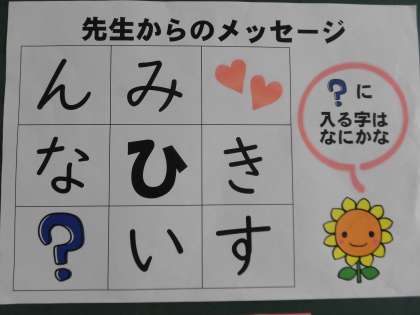 先生からのメッセージ
ん み
な ひ き
? い す
?に
入る字は
なにかな